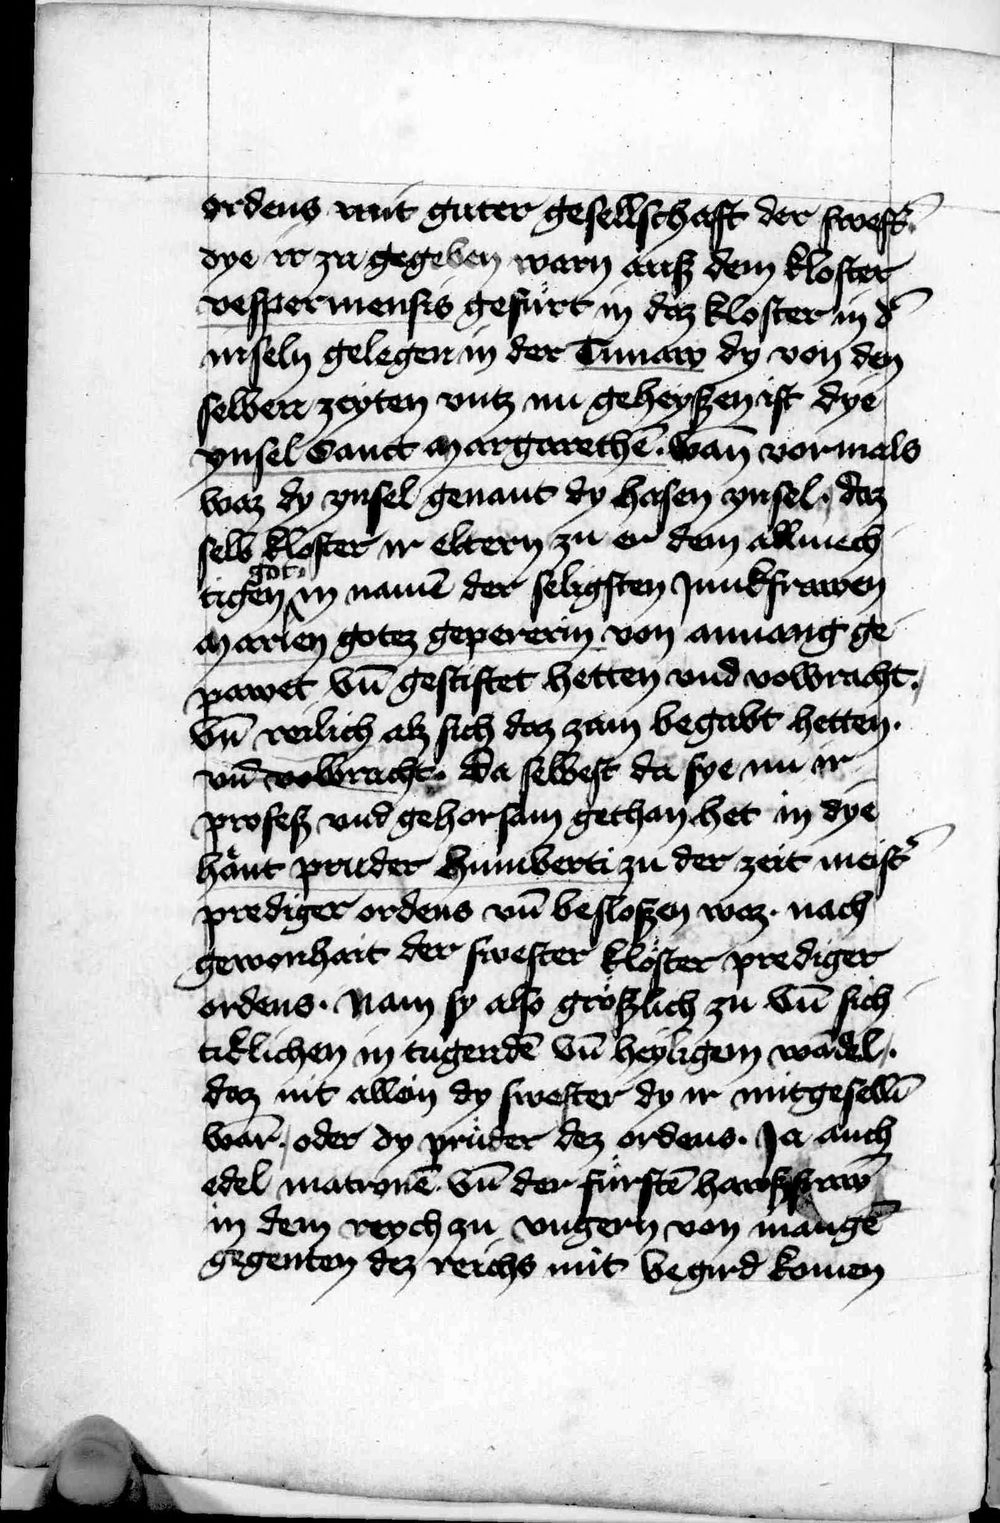 ordens mit guter gesellschaft der swest̄
dye ir zu gegeben warn auß dem kloster
vespermensis gefürt in daz kloster in d̄
inseln gelegen in der Tunaw dy von den
selben zeyten vntz nu geheyßen ist dye
ynsel Sanct Margarethē. wañ vormals
waz dy ynsel genant dy hasen ynsel. daz
selb kloster ir eltern zu er dem allmech
tigen got in namē der seligsten Junkfrawen
Marien gotez gepererin von anuang ge
pawet vn̄ gestiftet hetten vnd volbracht.
vn̄ reilich alz sich daz zam begabt hetten.
vnd̄ volbracht. Da selbest da sye nu ir
profeß vnd gehorsam gethan het in dye
hänt pruder Humberti zu der zeit meist̄
prediger ordens vn̄ besloßen waz. nach
gewonhait der swester klöster prediger
ordens. Nam sy also größlich zu vn̄ sich
tiklichen in tugendē vn̄ heyligem wādel.
daz nit allein dy swester dy ir mitgesellī
warn̄. oder dy prüder dez ordens. Ja auch
edel matronē. vn̄ der fürstē hawßfrawē
in dem reych zu vngern von mangē
gegenten dez reichs mit begird komen